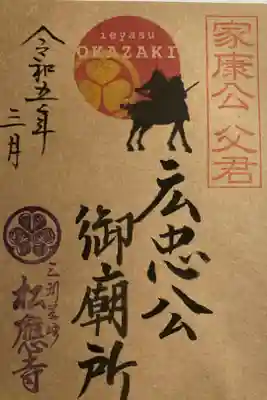 ieyasu
OKAZAKI
家康公 父君
広忠公
御廟所
令和五年
三月
三州岡崎
松應寺